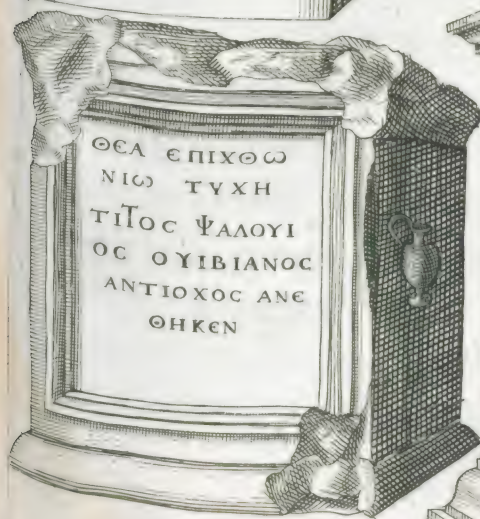 ΘЄΑ ЄΠΙΧΘω
ΝΙω ΤΥΧΗ
ΤΙΤΟС ΨΑΛΟΥΙ
ΟС ΟΥΙΒΙΑΝΟС
ΑΝΤΙΟΧΟС ΑΝЄ
ΘΗΚЄΝ